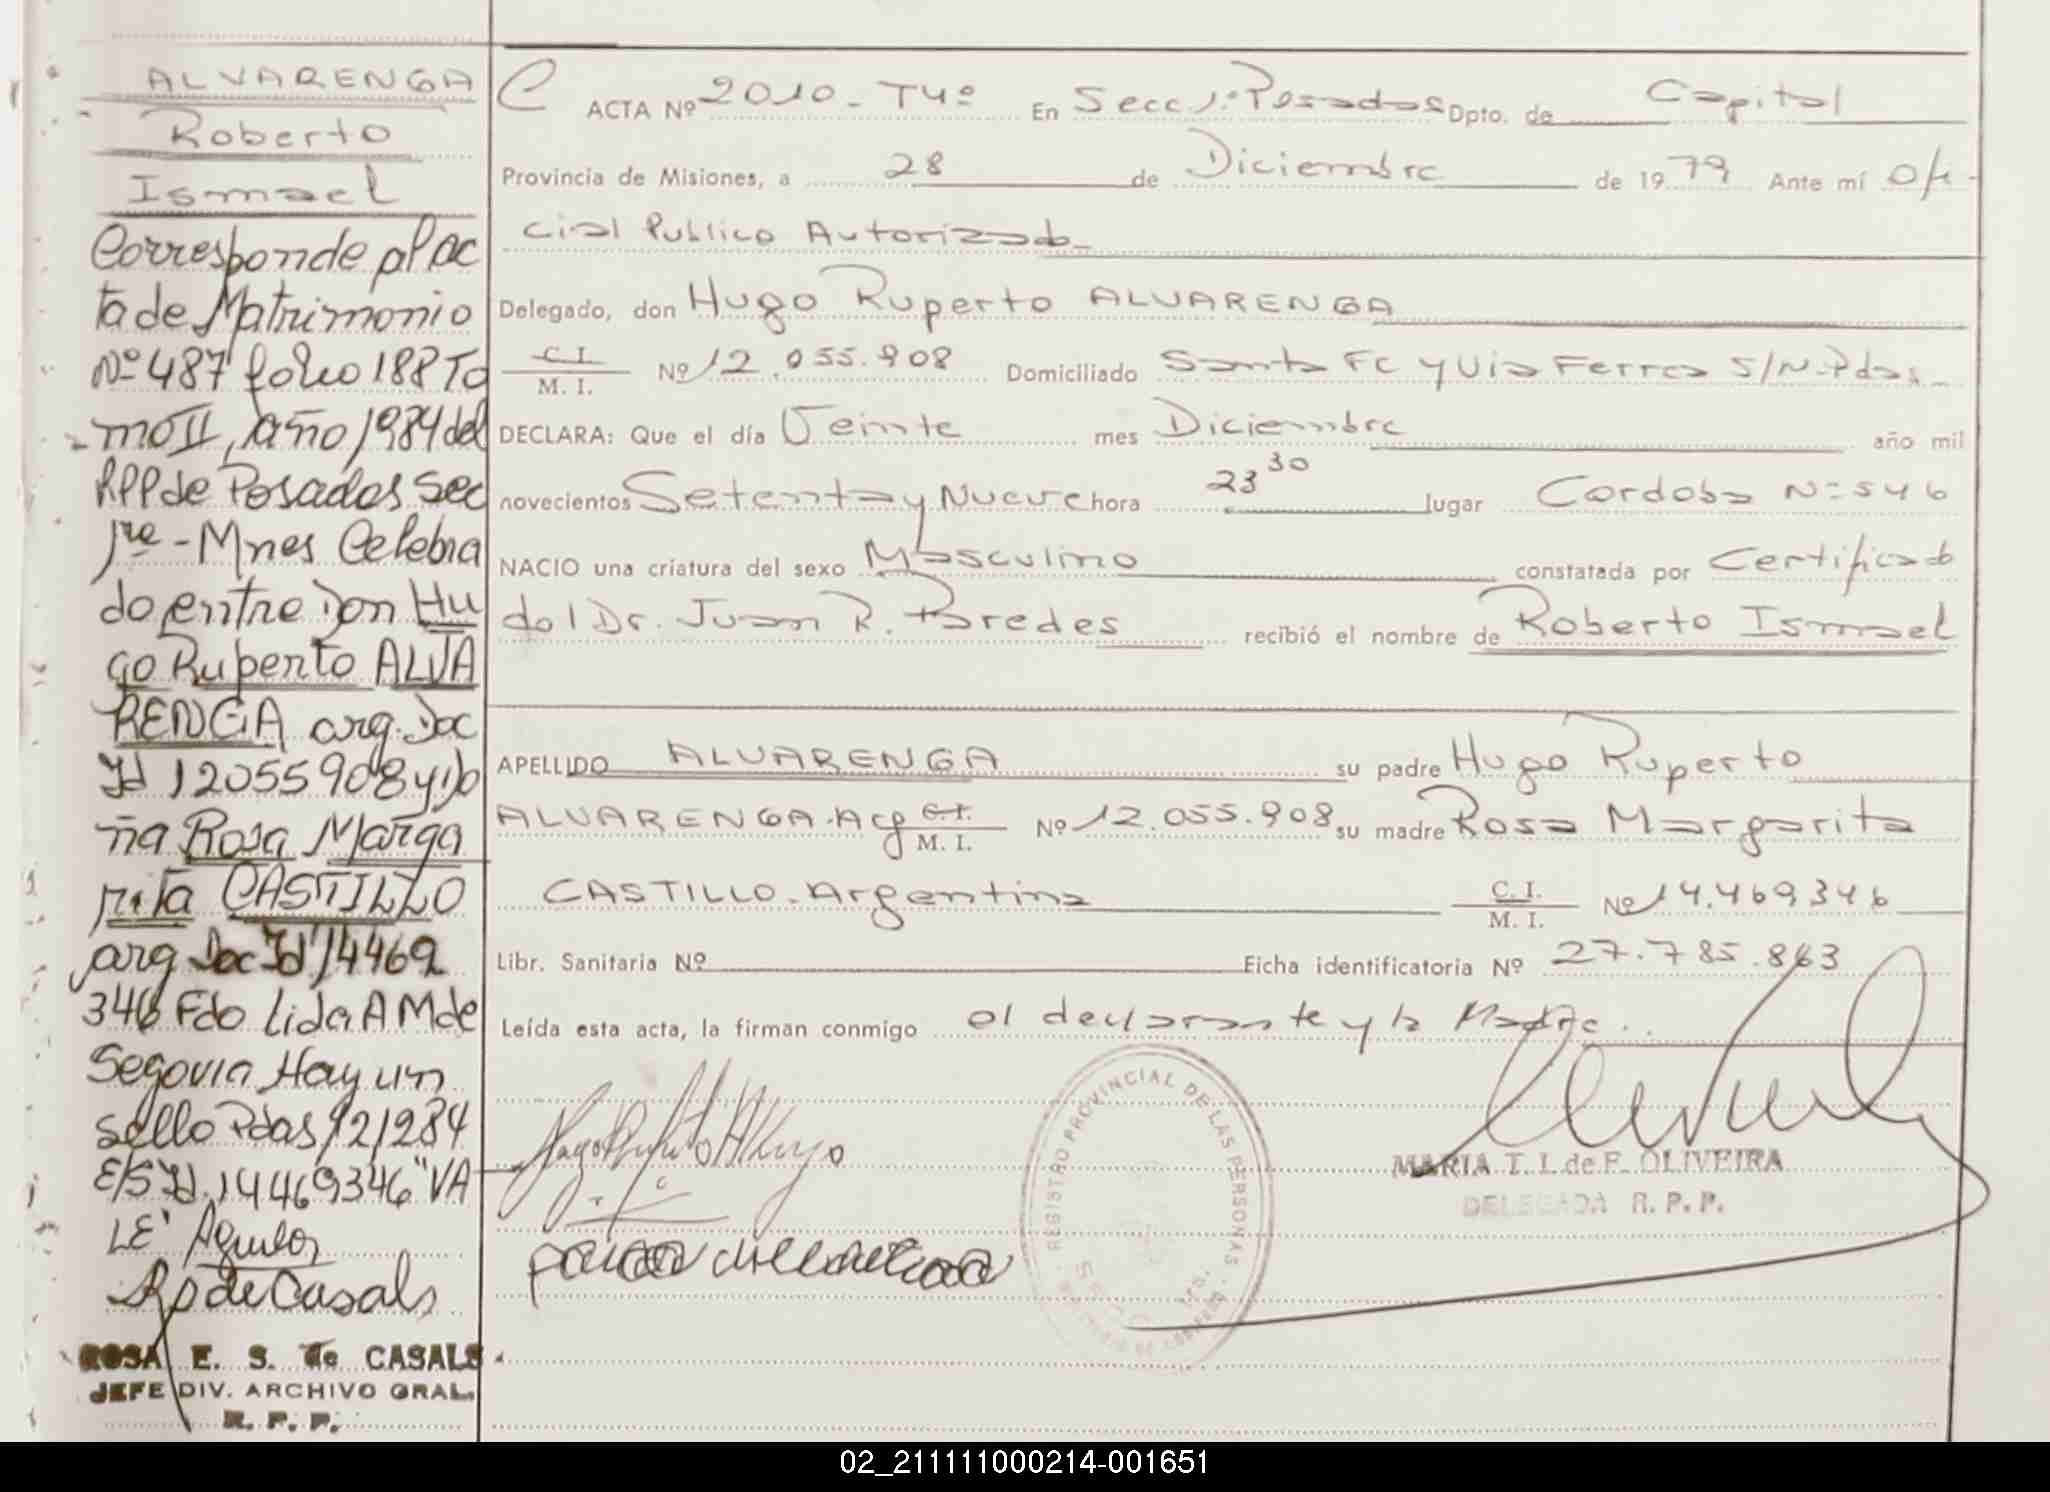 ALVARENGA
Roberto
Ismael
Corresponde al ac
ta de Matrimonio
Nº 487 folio 188 To
mo II, año 1984 del
RPP de Posadas Sec
1re - Mnes Celebra
do entre Don Hu
go Ruperto ALVA
RENGA arg. Doc
Id 12055908 y Do
ña Rosa Marga
rita CASTILLO
arg Doc Id 14469
346 Fdo Lida A M de
Segovia Hay un
sello Pdas 12/2/84
E/S Id. 14469346 "VA
LE"
Rp de Casals
ROSA E. S. de CASALS
JEFE DIV. ARCHIVO GRAL.
R. P. P.
C ACTA Nº 2010 - T4º En Secc 1º Posadas Dpto. de Capital
Provincia de Misiones, a 28 de Diciembre de 1979 Ante mí Ofi-
cial Publico Autorizado
Delegado, don Hugo Ruperto ALVARENGA
C I
M. I. Nº 12.055.908 Domiciliado Santa Fe y Via Ferrea S/N. Pdas
DECLARA: Que el día Veinte mes Diciembre año mil
novecientos Setenta y Nueve hora 23 30 lugar Cordoba Nº 546
NACIO una criatura del sexo Masculino constatada por Certificado
del Dr. Juan R. Paredes recibió el nombre de Roberto Ismael
APELLIDO ALVARENGA su padre Hugo Ruperto
ALVARENGA. Arg C.I.
M. I. Nº 12.055.908 su madre Rosa Margarita
CASTILLO. Argentina C. I.
M. I. Nº 14.469.346
Libr. Sanitaria Nº Ficha identificatoria Nº 27.785.863
Leída esta acta, la firman conmigo el declarante y la Madre.
REGISTRO PROVINCIAL DE LAS PERSONAS
MARIA T. I. de F. OLIVEIRA
DELEGADA R. P. P.
02_211111000214-001651